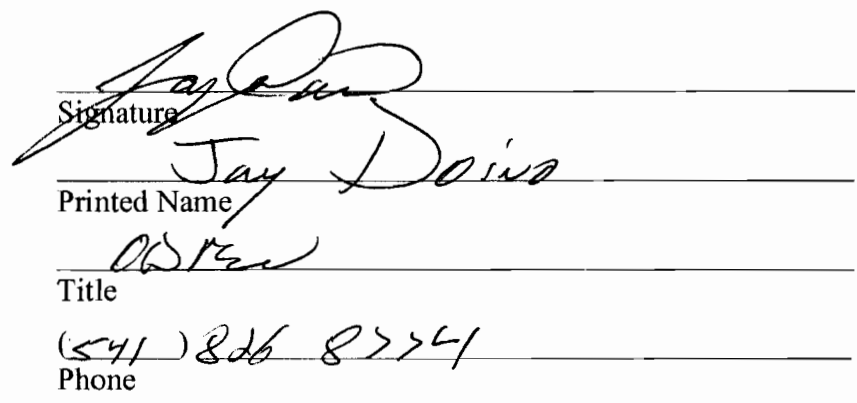 Signature
Jay Doino
Printed Name
Owner
Title
(541) 826 8774
Phone